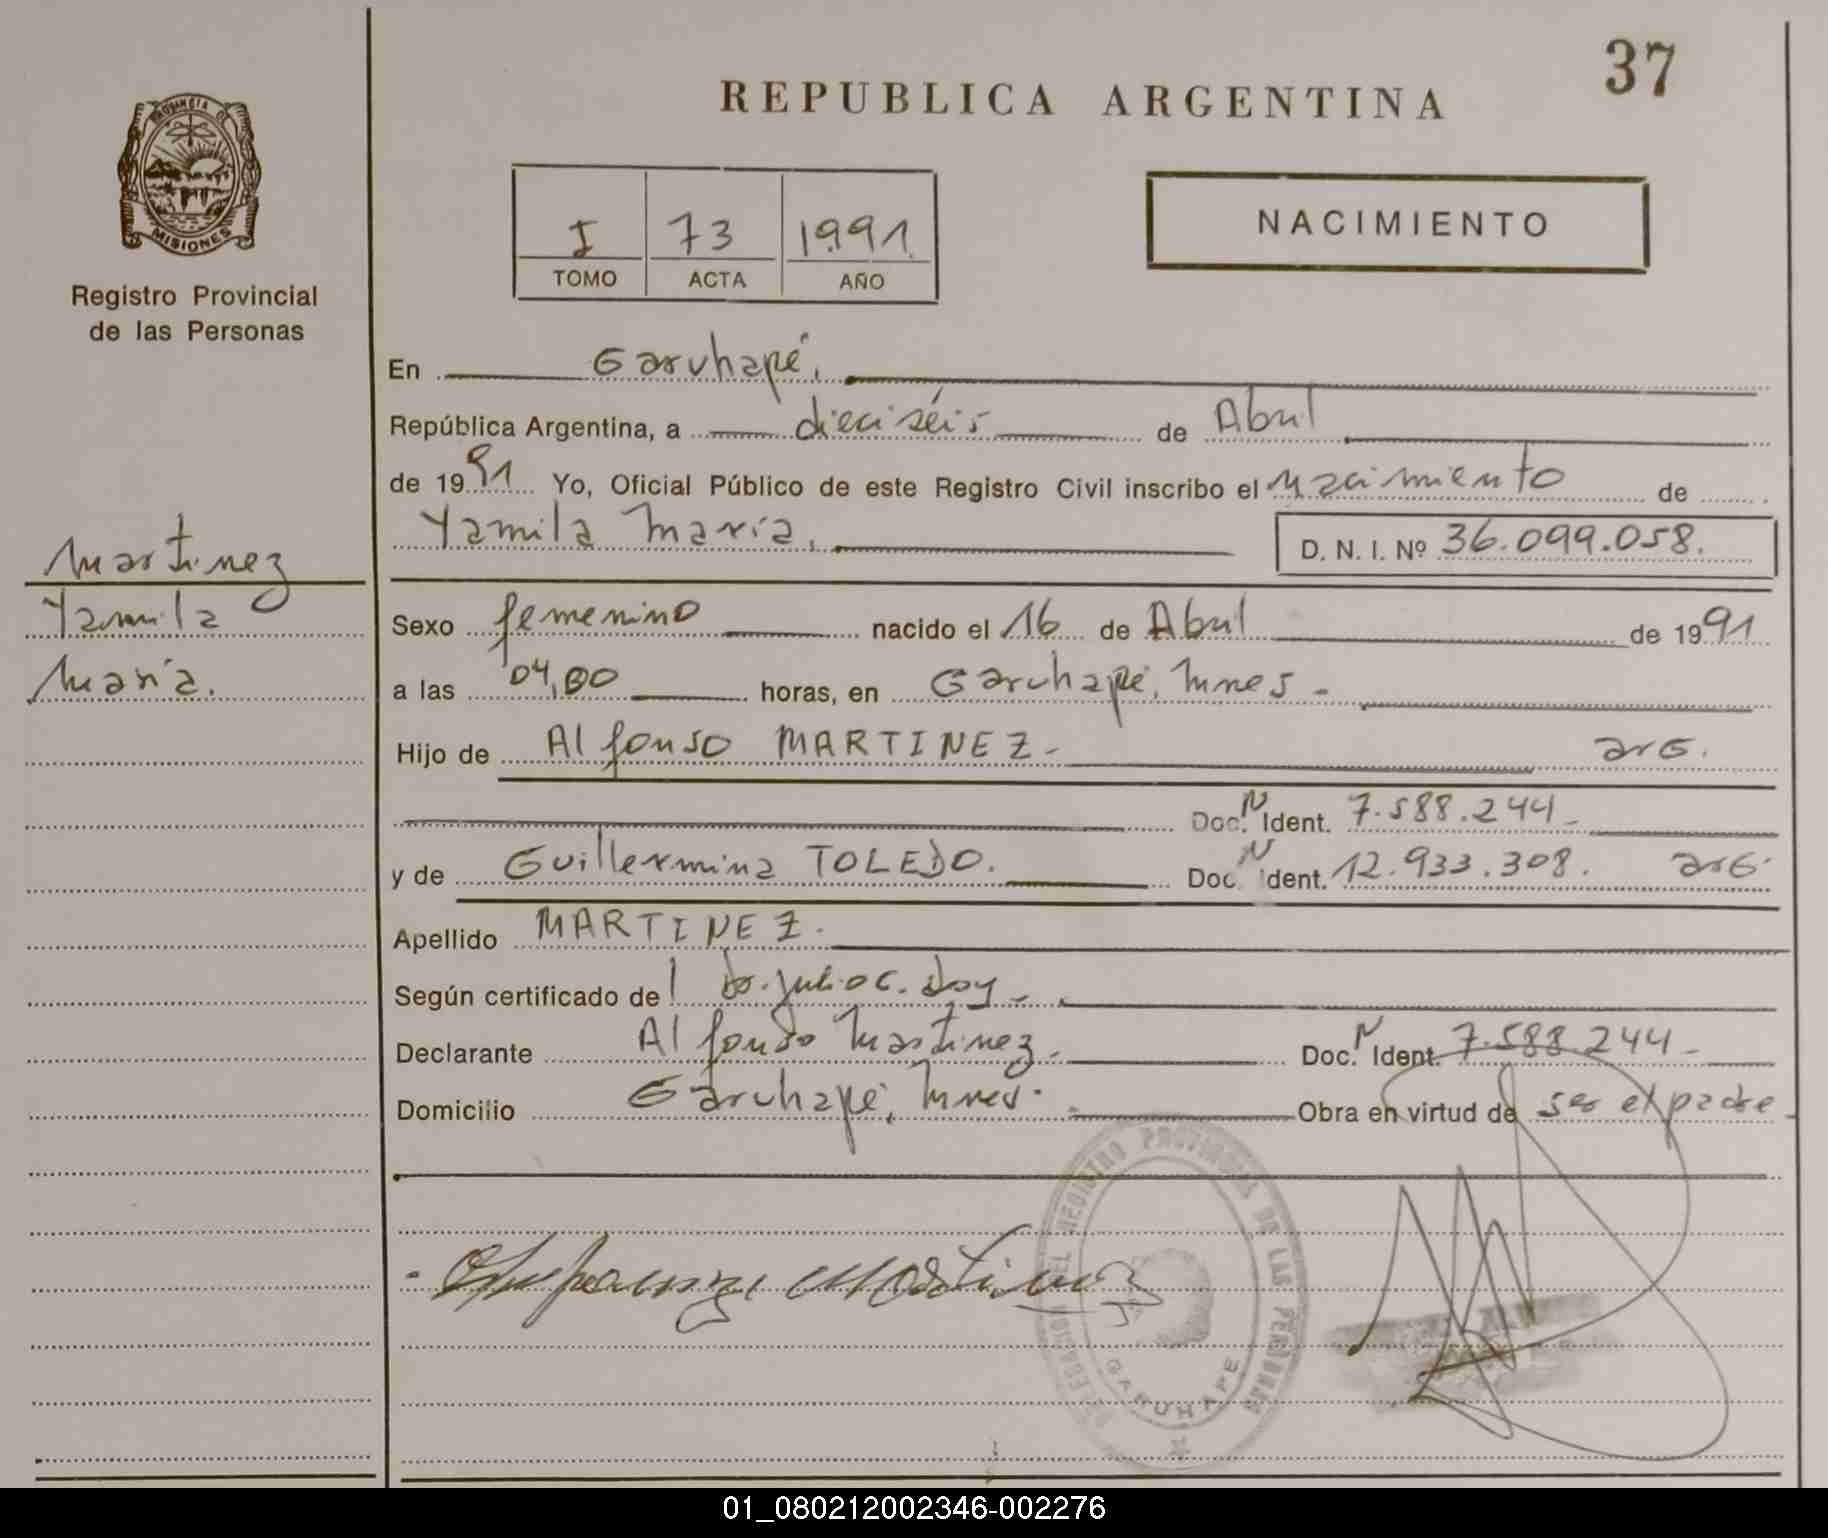 37
REPUBLICA ARGENTINA
PROVINCIA DE
MISIONES
Registro Provincial
de las Personas
I 73 1991
TOMO ACTA AÑO
NACIMIENTO
En Garuhapé,
República Argentina, a dieciséis de Abril
de 1991 Yo, Oficial Público de este Registro Civil inscribo el nacimiento de
Yamila María, D. N. I. Nº 36.099.058.
Martinez
Yamila
María.
Sexo femenino nacido el 16 de Abril de 1991
a las 04,00 horas, en Garuhapé, Mnes -
Hijo de Alfonso MARTINEZ - arG.
Doc. N Ident. 7.588.244 -
y de Guillermina TOLEDO. Doc N Ident. 12.933.308. arG.
Apellido MARTINEZ.
Según certificado del Dr. Julio C. Doy -
Declarante Alfonso Martinez - Doc. N Ident. 7.588.244 -
Domicilio Garuhapé, Mnes. Obra en virtud de ser el padre -
REGISTRO PROVINCIAL DE LAS PERSONAS
GARUHAPE
01_080212002346-002276